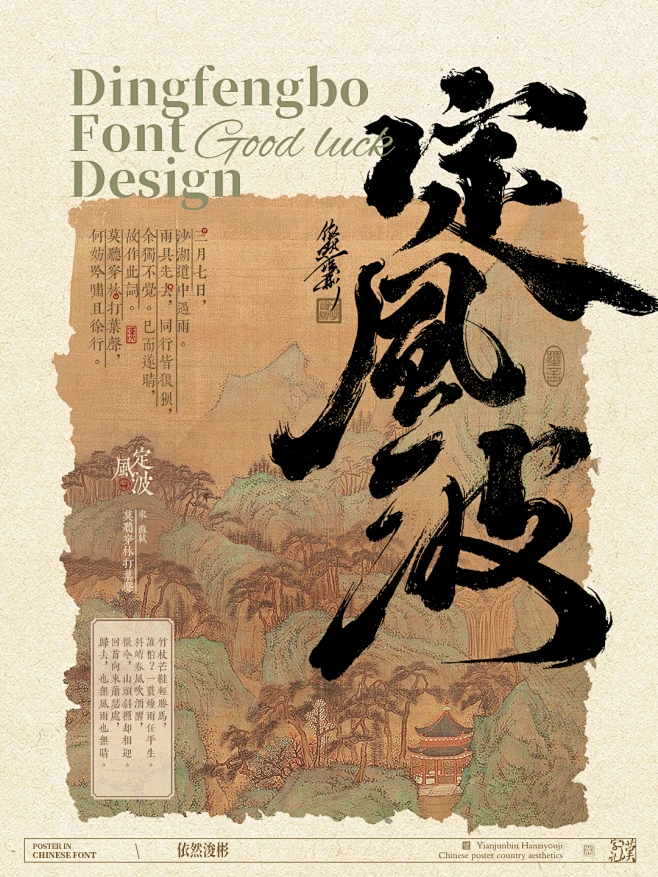 Dingfengbo
Font Good luck
Design
定風波
依然浚彬
三月七日，
沙湖道中遇雨。
雨具先去，同行皆狼狽，
余獨不覺。已而遂晴，
故作此詞。
莫聽穿林打葉聲，
何妨吟嘯且徐行。
定風波
宋 蘇軾
莫聽穿林打葉聲
竹杖芒鞋輕勝馬，
誰怕？一蓑煙雨任平生。
料峭春風吹酒醒，
微冷，山頭斜照卻相迎。
回首向來蕭瑟處，
歸去，也無風雨也無晴。
POSTER IN
CHINESE FONT
\
依然浚彬
Yianjunbin Hanziyouji
Chinese poster country aesthetics